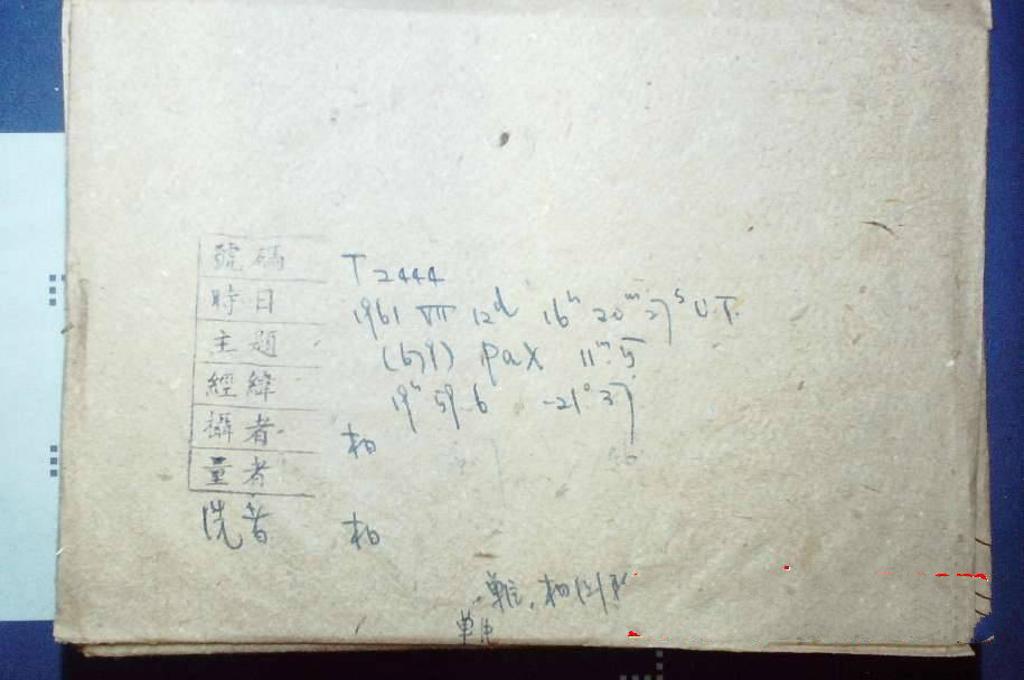 號碼 T 2444
時日 1961 VII 12d 16h 20m 27s U.T.
主題 (679) Pax 11m.5
經緯 19h 59.6 -21° 37
攝者 柏
量者
洗者 柏